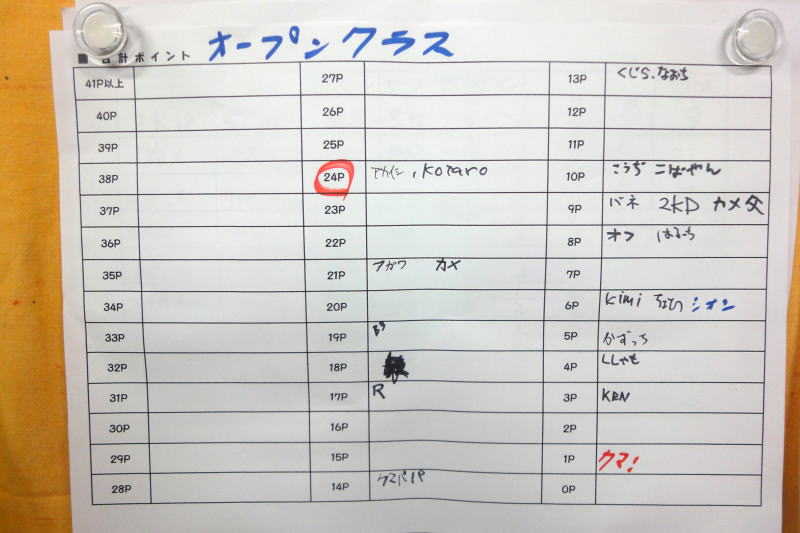 ■ 合計ポイント オープンクラス
41P以上
40P
39P
38P
37P
36P
35P
34P
33P
32P
31P
30P
29P
28P
27P
26P
25P
24P アカイシ, KOTARO
23P
22P
21P アガワ カメ
20P
19P
18P
17P R
16P
15P
14P クマパパ
13P くじら、なおち
12P
11P
10P こうぢ こばやん
9P バネ 2KD カメ父
8P オフ はるーち
7P
6P kimi ちょび シオン
5P かずっち
4P ししゃも
3P KEN
2P
1P クマ!
0P